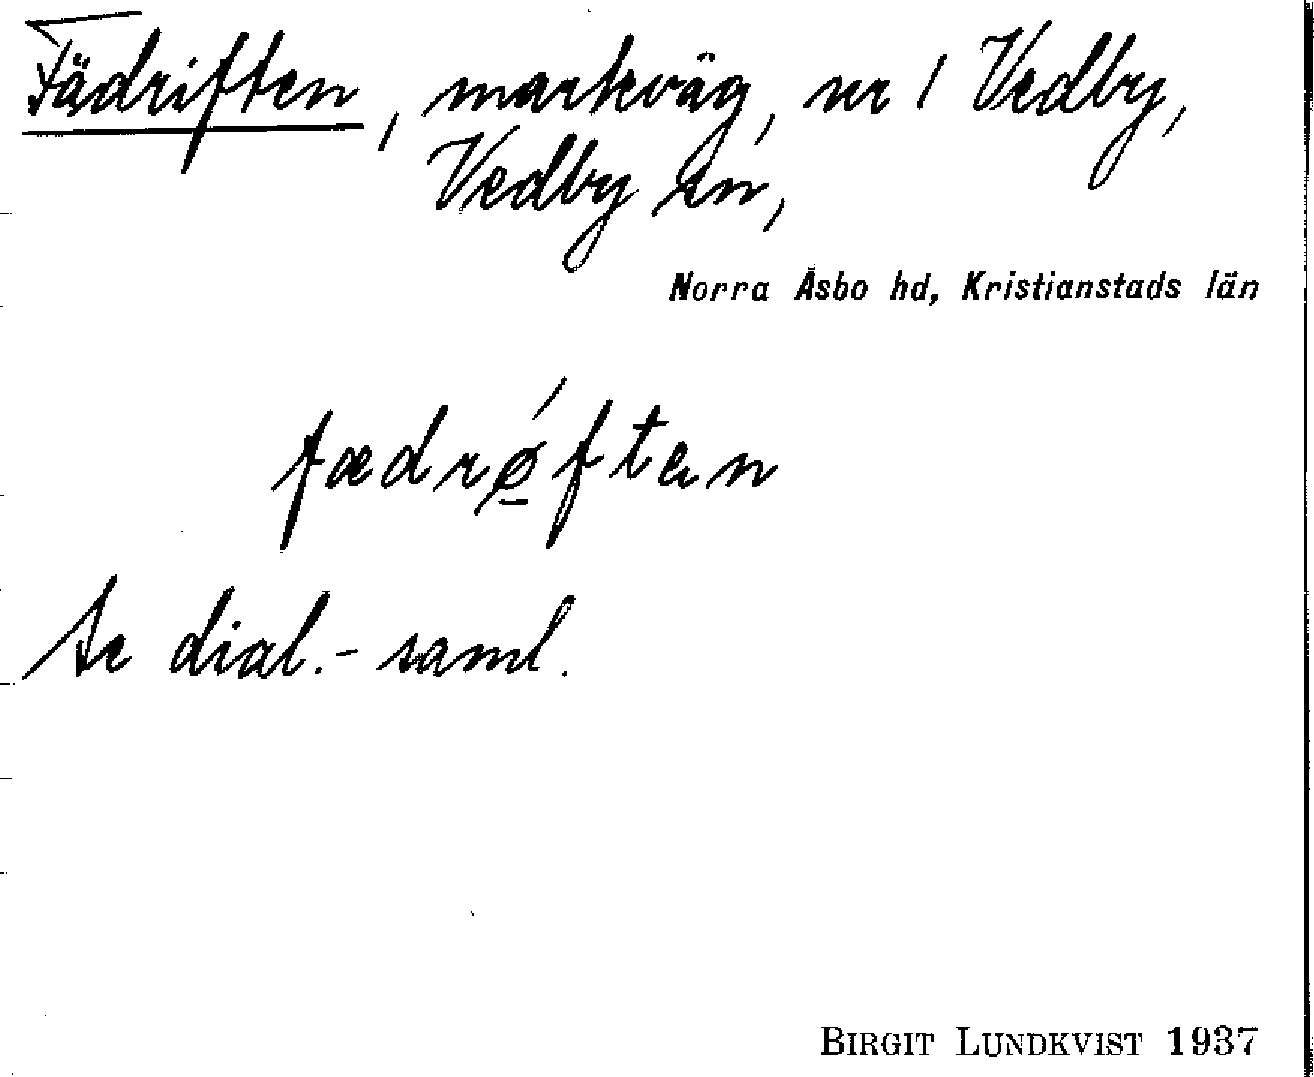 Fädriften, markväg, nr 1 Vedby,
Vedby sn,
Norra Åsbo hd, Kristianstads län
fædrǿ̲ftan
Se dial.-saml.
BIRGIT LUNDKVIST 1937